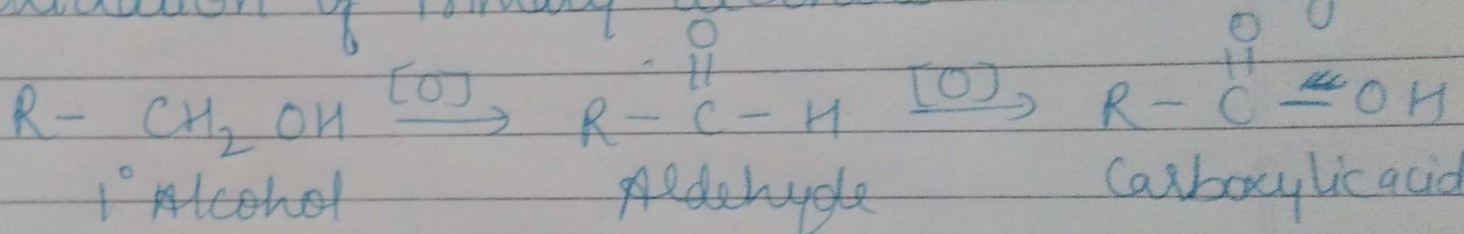 of
O O
|| ||
R - CH₂ OH [O]→ R - C - H [O]→ R - C - OH
1° Alcohol Aldehyde Carboxylic acid